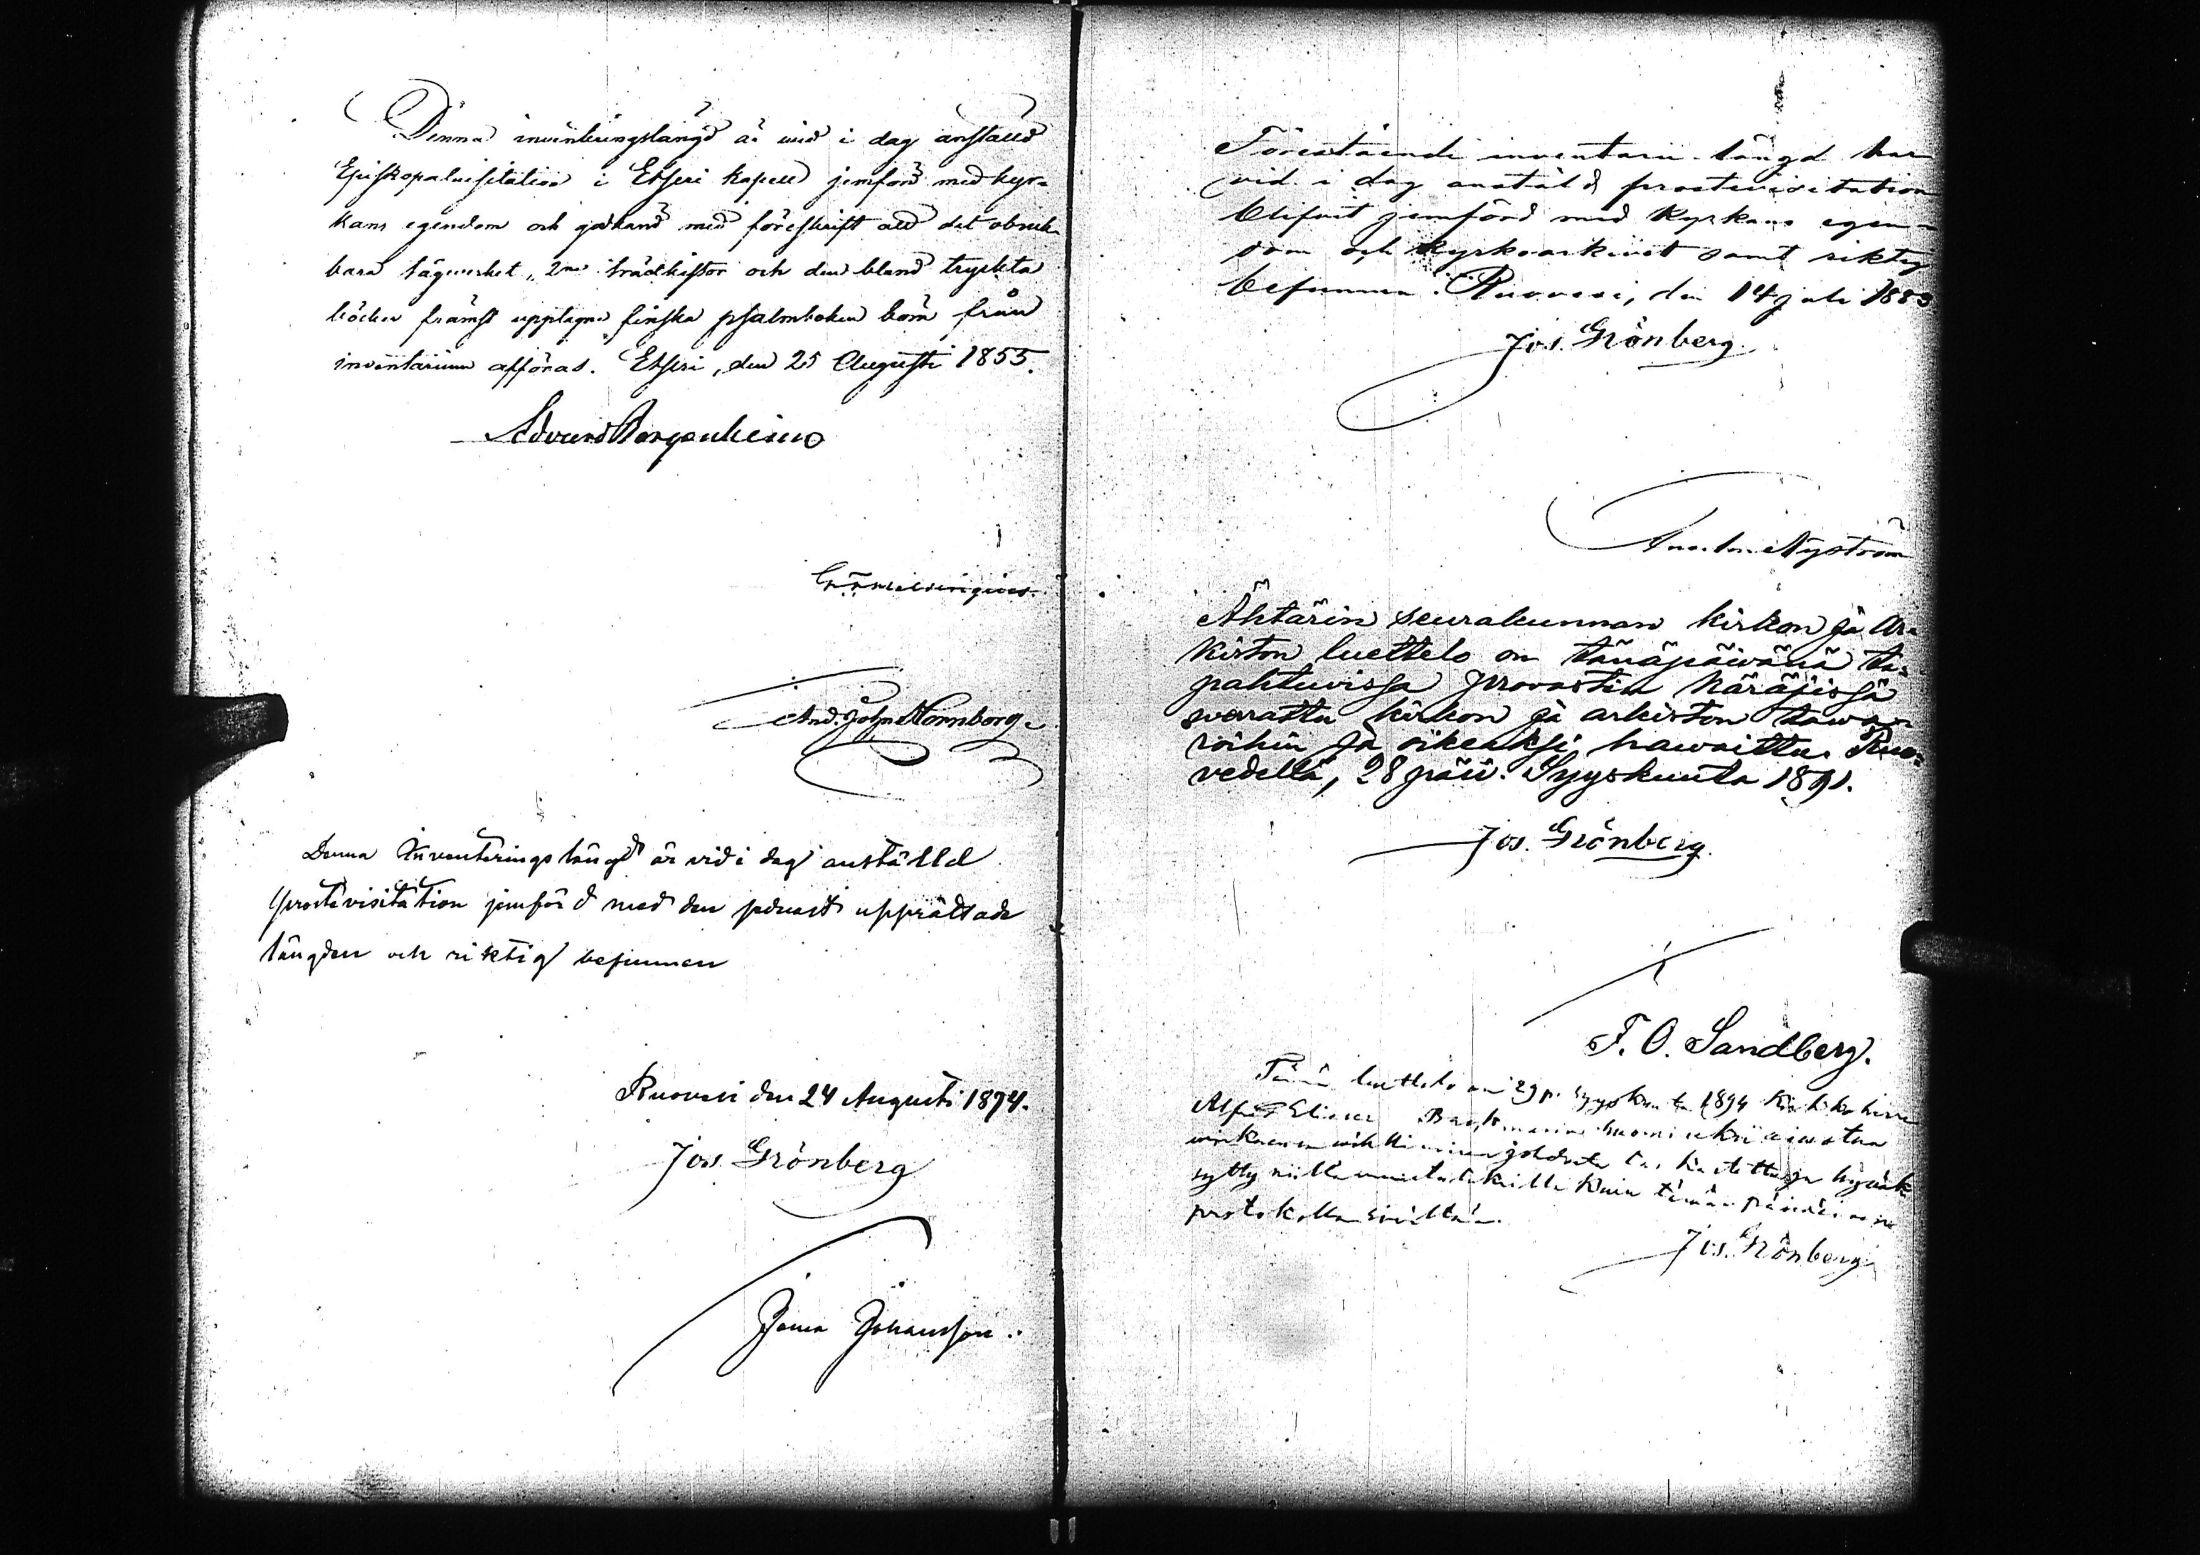 Denna inventeringslängd är wid i dag anställd
Episkopalvisitation i Etseri kapell jemförd med kyr-
kans egendom och godkänd med föreskrift att det obruk-
bara sågwerket, 2ne brädkistor och den bland tryckta
böcker främst upptagna finska psalmboken böra från
inventarium afföras. Etseri, den 25 Augusti 1855.
Edvard Bergenheim
And. Joh. Hornborg
Denna Inventeringslängd är vid i dag anställd
prostevisitation jemförd med den senast upprättade
längden och riktig befunnen
Ruovesi den 24 Augusti 1874.
Jos. Grönberg
Johansson.
Förestående inventarii längd har
vid i dag anstäld prostevisitation
blifvit jemförd med Kyrkans egen-
dom och kyrkoarkivet samt riktig
befunnen. Ruovesi, den 14 juli 1883
Jos. Grönberg.
Nyström
Ähtärin seurakunnan kirkon ja Ar-
kiston luettelo on tänäpäivänä ta-
pahtuvissa provastin käräjissä
verrattu kirkon ja arkiston tawa-
roihin ja oikeaksi hawaittu. Ruo-
vedellä, 28 päiv. Syyskuuta 1891.
Jos. Grönberg.
F. O. Sandberg.
Tämä luettelo on 29 p. syyskuuta 1894 Kirkkoherra
Alfred Elieser
virkaan
sytty niillä muistutuksilla kuin tämän päiväinen
protokolla sisältää.
Jos. Grönberg